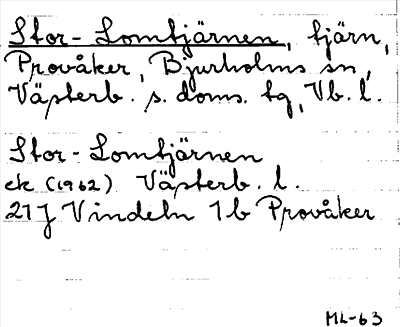 Stor-Lomtjärnen, tjärn,
Provåker, Bjurholms sn,
Västerb. s. doms. tg, Vb. l.
Stor-Lomtjärnen
ek (1962) Västerb. l.
21J Vindeln 1b Provåker
ML-63